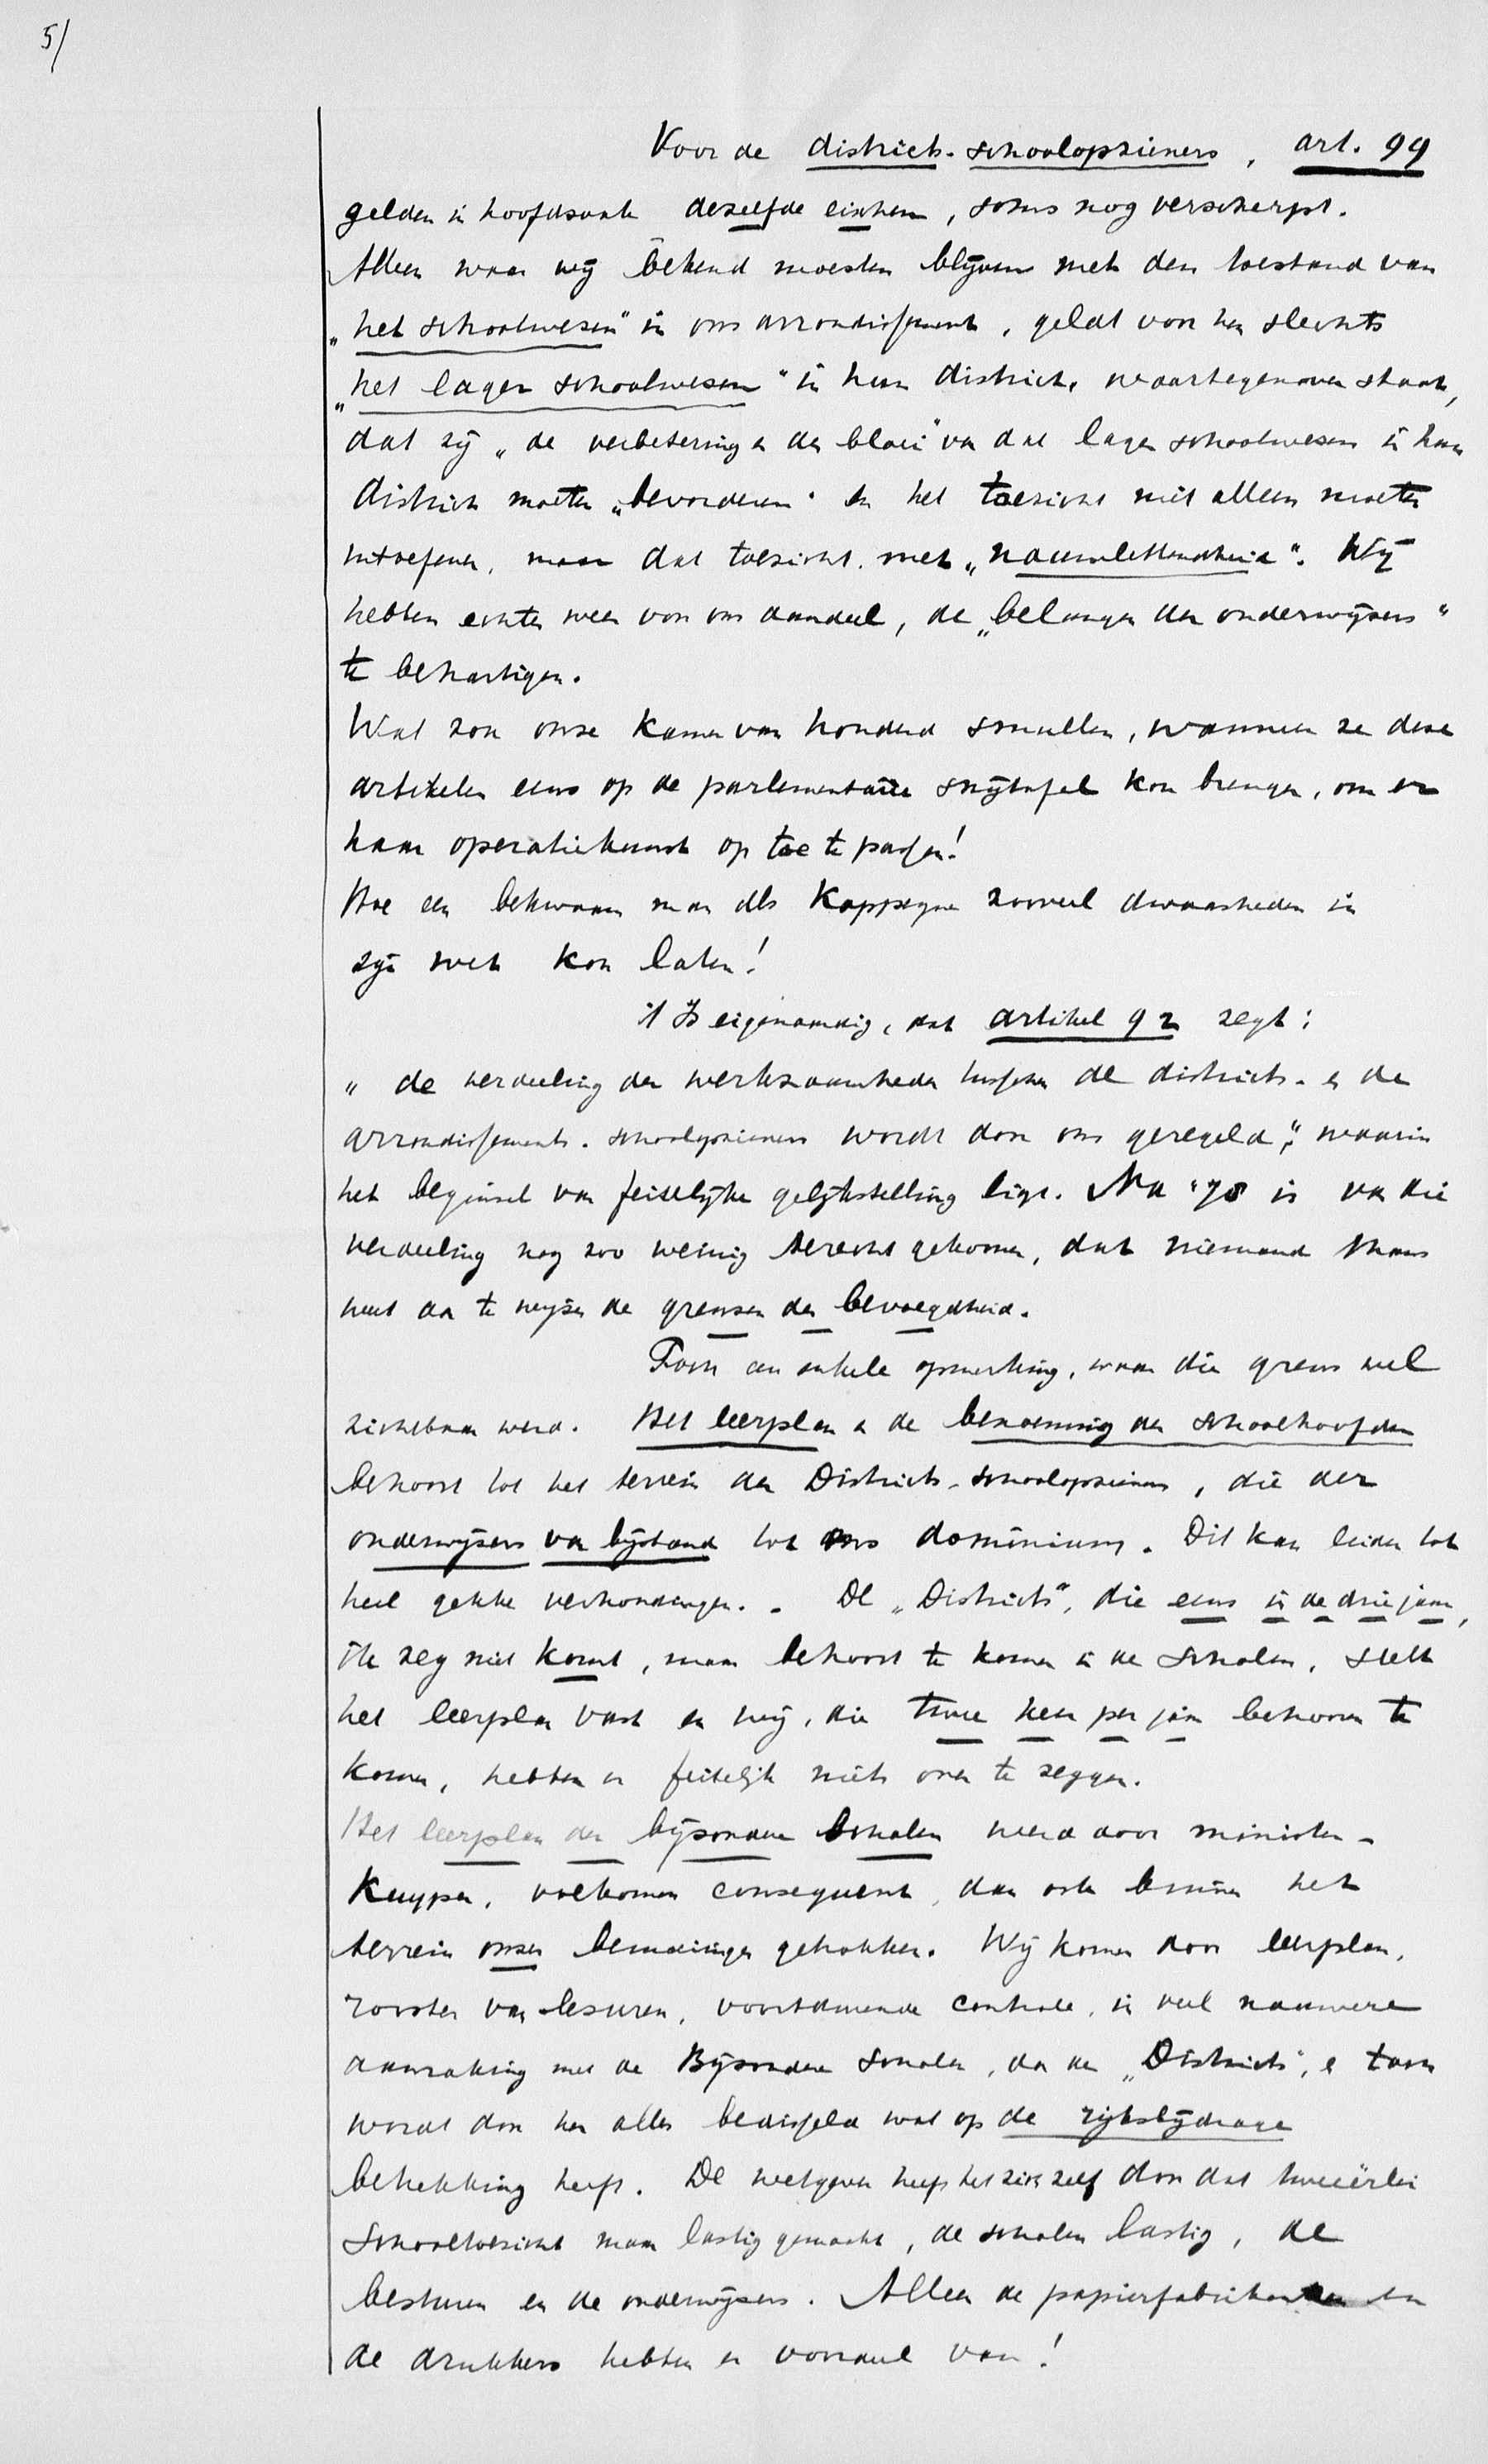 5/
Voor de districts-schoolopzieners, art. 99
gelden in hoofdzaak dezelfde eischen, soms nog verscherpt.
Alleen waar wij bekend moesten blijven met den toestand van
„het schoolwezen" in ons arrondissement, geldt voor hen slechts
„het lager schoolwezen" in hun district, waartegenover staat,
dat zij „de verbetering en den bloei" van dat lager schoolwezen in hun
district moeten „bevorderen" en het toezicht niet alleen moeten
uitoefenen, maar dat toezicht met „nauwlettendheid". Wij
hebben echter weer voor ons aandeel, de „belangen der onderwijzers"
te behartigen.
Wat zou onze Kamer van honderd smullen, wanneer ze deze
artikelen eens op de parlementaire snijtafel kon brengen, om er
haar operatiekunst op toe te passen!
Hoe een bekwaam man als Kappeyne zooveel dwaasheden in
zijn wet kon laten!
't Is eigenaardig, dat artikel 92 zegt:
„de verdeeling der werkzaamheden tusschen de districts- en de
arrondissements-schoolopzieners wordt door ons geregeld", waarin
het beginsel van feitelijke gelijkstelling ligt. Na '78 is van die
verdeeling nog zoo weinig terecht gekomen, dat niemand thans
weet aan te wijzen de grenzen der bevoegdheid.
Toon een enkele opmerking, waar die grens wel
zichtbaar werd. Het leerplan en de benoeming der schoolhoofden
behoort tot het terrein der Districts-schoolopzieners, die der
onderwijzers van bijstand tot ons dominium. Dit kan leiden tot
heel gekke verhoudingen. De „Districts", die eens in de drie jaar,
ik zeg niet komt, maar behoort te komen in de scholen, stelt
het leerplan vast en wij, die twee keer per jaar behooren te
komen, hebben er feitelijk niets over te zeggen.
Het leerplan der bijzondere scholen werd door minister-
Kuyper, volkomen consequent, dan ook binnen het
terrein onzer bemoeiingen getrokken. Wij komen door leerplan,
rooster van lesuren, voortdurende controle, in veel nauwere
aanraking met de Bijzondere scholen, dan de „Districts", en toch
wordt door hen alles bedisseld wat op de rijksbijdrage
betrekking heeft. De wetgever heeft het zich zelf door dat tweeërlei
Schooltoezicht maar lastig gemaakt, de scholen lastig, de
besturen en de onderwijzers. Alleen de papierfabrikanten en
de drukkers hebben er voordeel van!